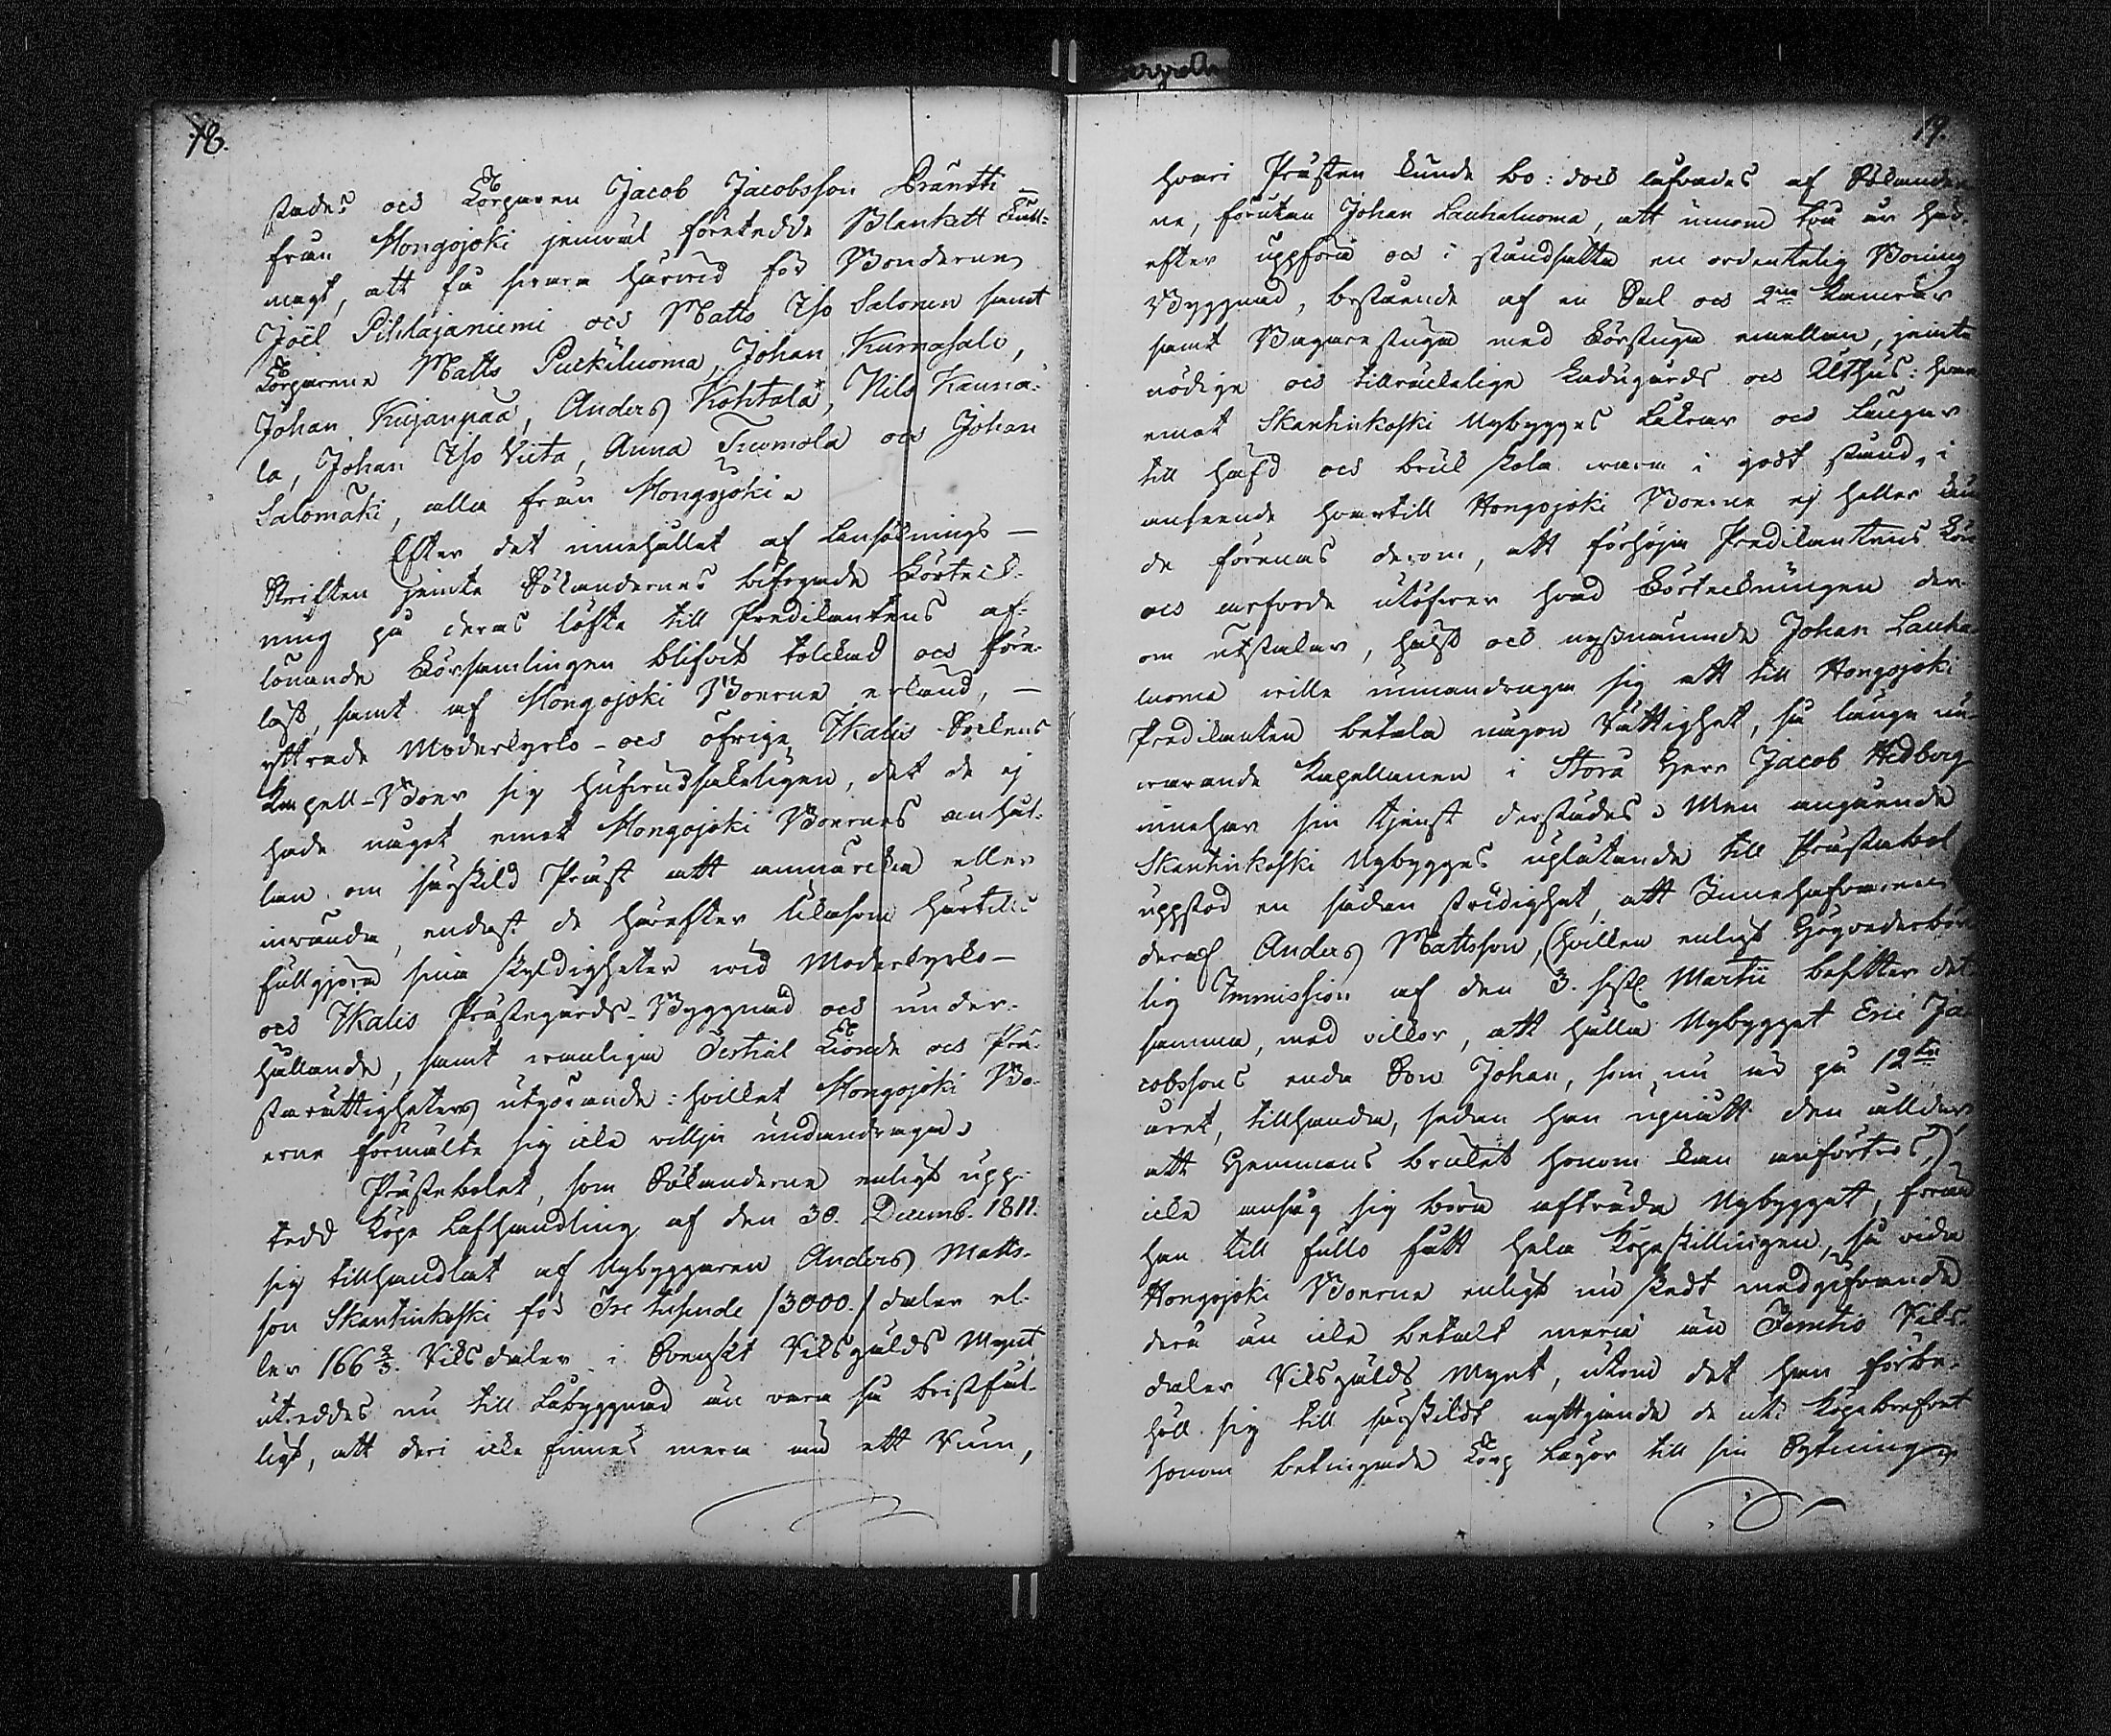 18.
stades och Torparen Jacob Jacobsson Präntti
från Hongojoki jemväl företedde Blankett Full-
magt, att få svara härvid för Bönderne
Joël Pihlajaniemi och Matts Iso Salonen samt
Torparene Matts Purkiluoma, Johan Kurvasalo,
Johan Kujanpää, Anders Kohtala, Nils Kauna-
la, Johan Iso Viita, Anna Tuomola och Johan
Salomäki, alla från Hongojoki.
Efter det innehållet af Ansöknings-
Skriften jemte Sökandernes bifogade Förteck-
ning på deras löfte till Predikantens af-
lönande Församlingen blifvit tolckad och före-
läst, samt af Hongojoki Boerne erkänd,
yttrade Moderkyrko- och öfrige Ikalis Sockens
Kapell-Boer sig hufvudsakeligen, det de ej
hade något emot Hongojoki Boernes anhål-
lan om särskild Präst att anmärcka eller
invända, endast de härefter likasom härtills
fullgjöra sina skyldigheter vid Moderkyrko-
och Ikalis Prästegårds-Byggnad och under-
hållande, samt vanliga Tertial Tionde och Prä-
sterättigheters utgörande: hvilket Hongojoki Bo-
erne förmälte sig icke villja undandraga.
Prästebolet, som Sökanderne enligt upp-
tedd Köpe Afhandling af den 30. Decemb. 1811.
sig tillhandlat af Nybyggaren Anders Matts-
son Skantinkoski för Tre tusende /3000./ daler el-
ler 166 2/3. Riksdaler i Svenskt Riksgälds Mynt,
utreddes nu till Åbyggnad än vara så bristfäl-
ligt, att deri icke finnes mera än ett Rum,
19.
hvari Prästen kunde bo: dock lofvades af Sökander
ne, förutan Johan Lauhaluoma, att innom två år här-
efter uppföra och i ståndsätta en ordentelig Boning
Byggnad, bestående af en Sal och 2ne Kamrar
samt Bagarestuga med Förstuga emellan, jemte
nödige och tillräckelige Ladugårds och Uthus: hvar
emot Skantinkoski Nybygges Åkrar och Ängar
till häfd och bruk skola vara i godt stånd, i
anseende hvartill Hongojoki Boerne ej heller kun
de förenas derom, att förhöja Predikantens Lön
och arfvode utöfver hvad Förteckningen der
om utstakar, helst och nyssnämnde Johan Lauha-
luoma ville undandraga sig att till Hongojoki
Predikanten betala någon Rättighet, så länge nu-
varande Kapellanen i Storå Herr Jacob Hedberg
innehar sin tjenst derstädes. Men angående
Skantinkoski Nybygges uplåtande till Prästebol
uppstod en sådan stridighet, att Innehafvaren
deraf Anders Mattsson, (hvilken enligt Högvederbör
lig Immission af den 3. sistl. Martii besitter det
samma, med vilkor, att hålla Nybygget Eric Ja
cobssons enda Son Johan, som nu är på 12te
året, tillhanda, sedan han upnått den ålder,
att Hemmans bruket honom kan anförtros,)
icke ansåg sig böra afträda Nybygget, förrän
han till fullo fått hela Köpeskillingen, så vida
Hongojoki Boerne enligt nu skedt medgifvande
derå än icke betalt mera än Femtio Riks-
daler Riksgälds Mynt, utom det han förbe-
höll sig till särskildt nyttjande de uti Köpebrefvet
honom betingade Torp Lägor till sin Sytning